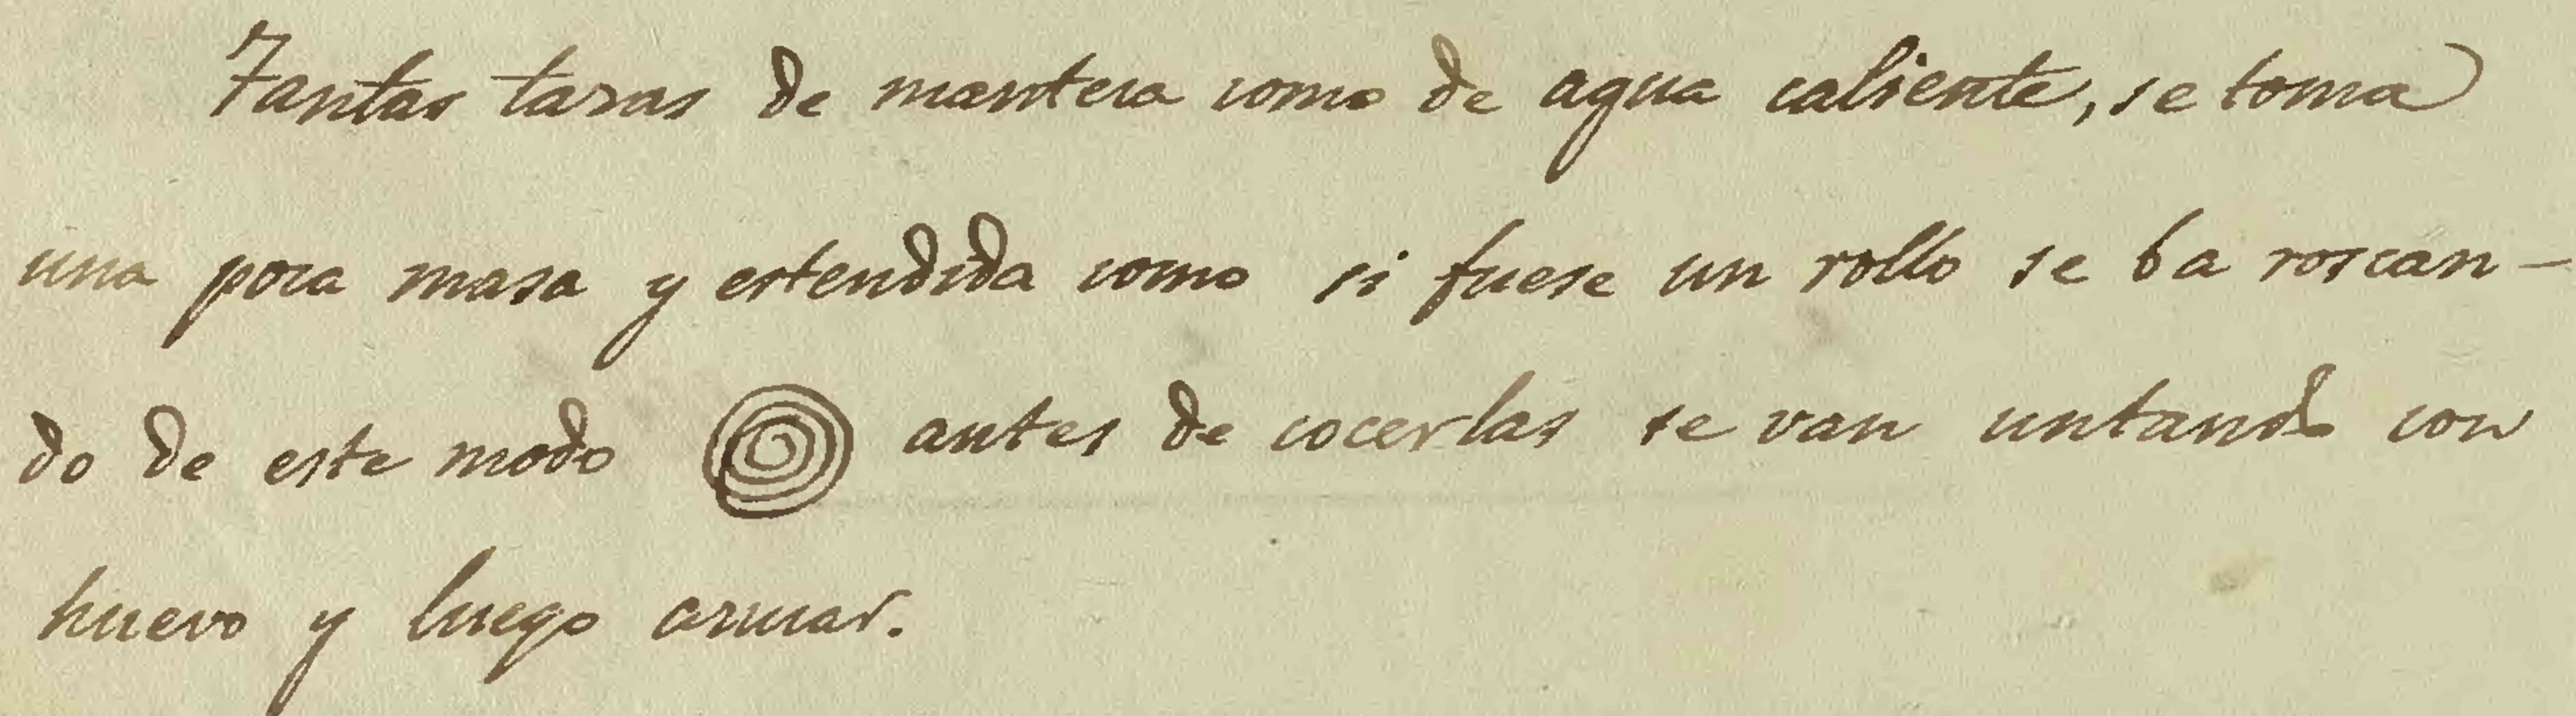 Tantas tasas de manteca como de agua caliente, se toma
una poca masa y estendida como si fuese un rollo se ba roscan-
do de este modo antes de cocerlas se van untando con
huevo y luego asucar.